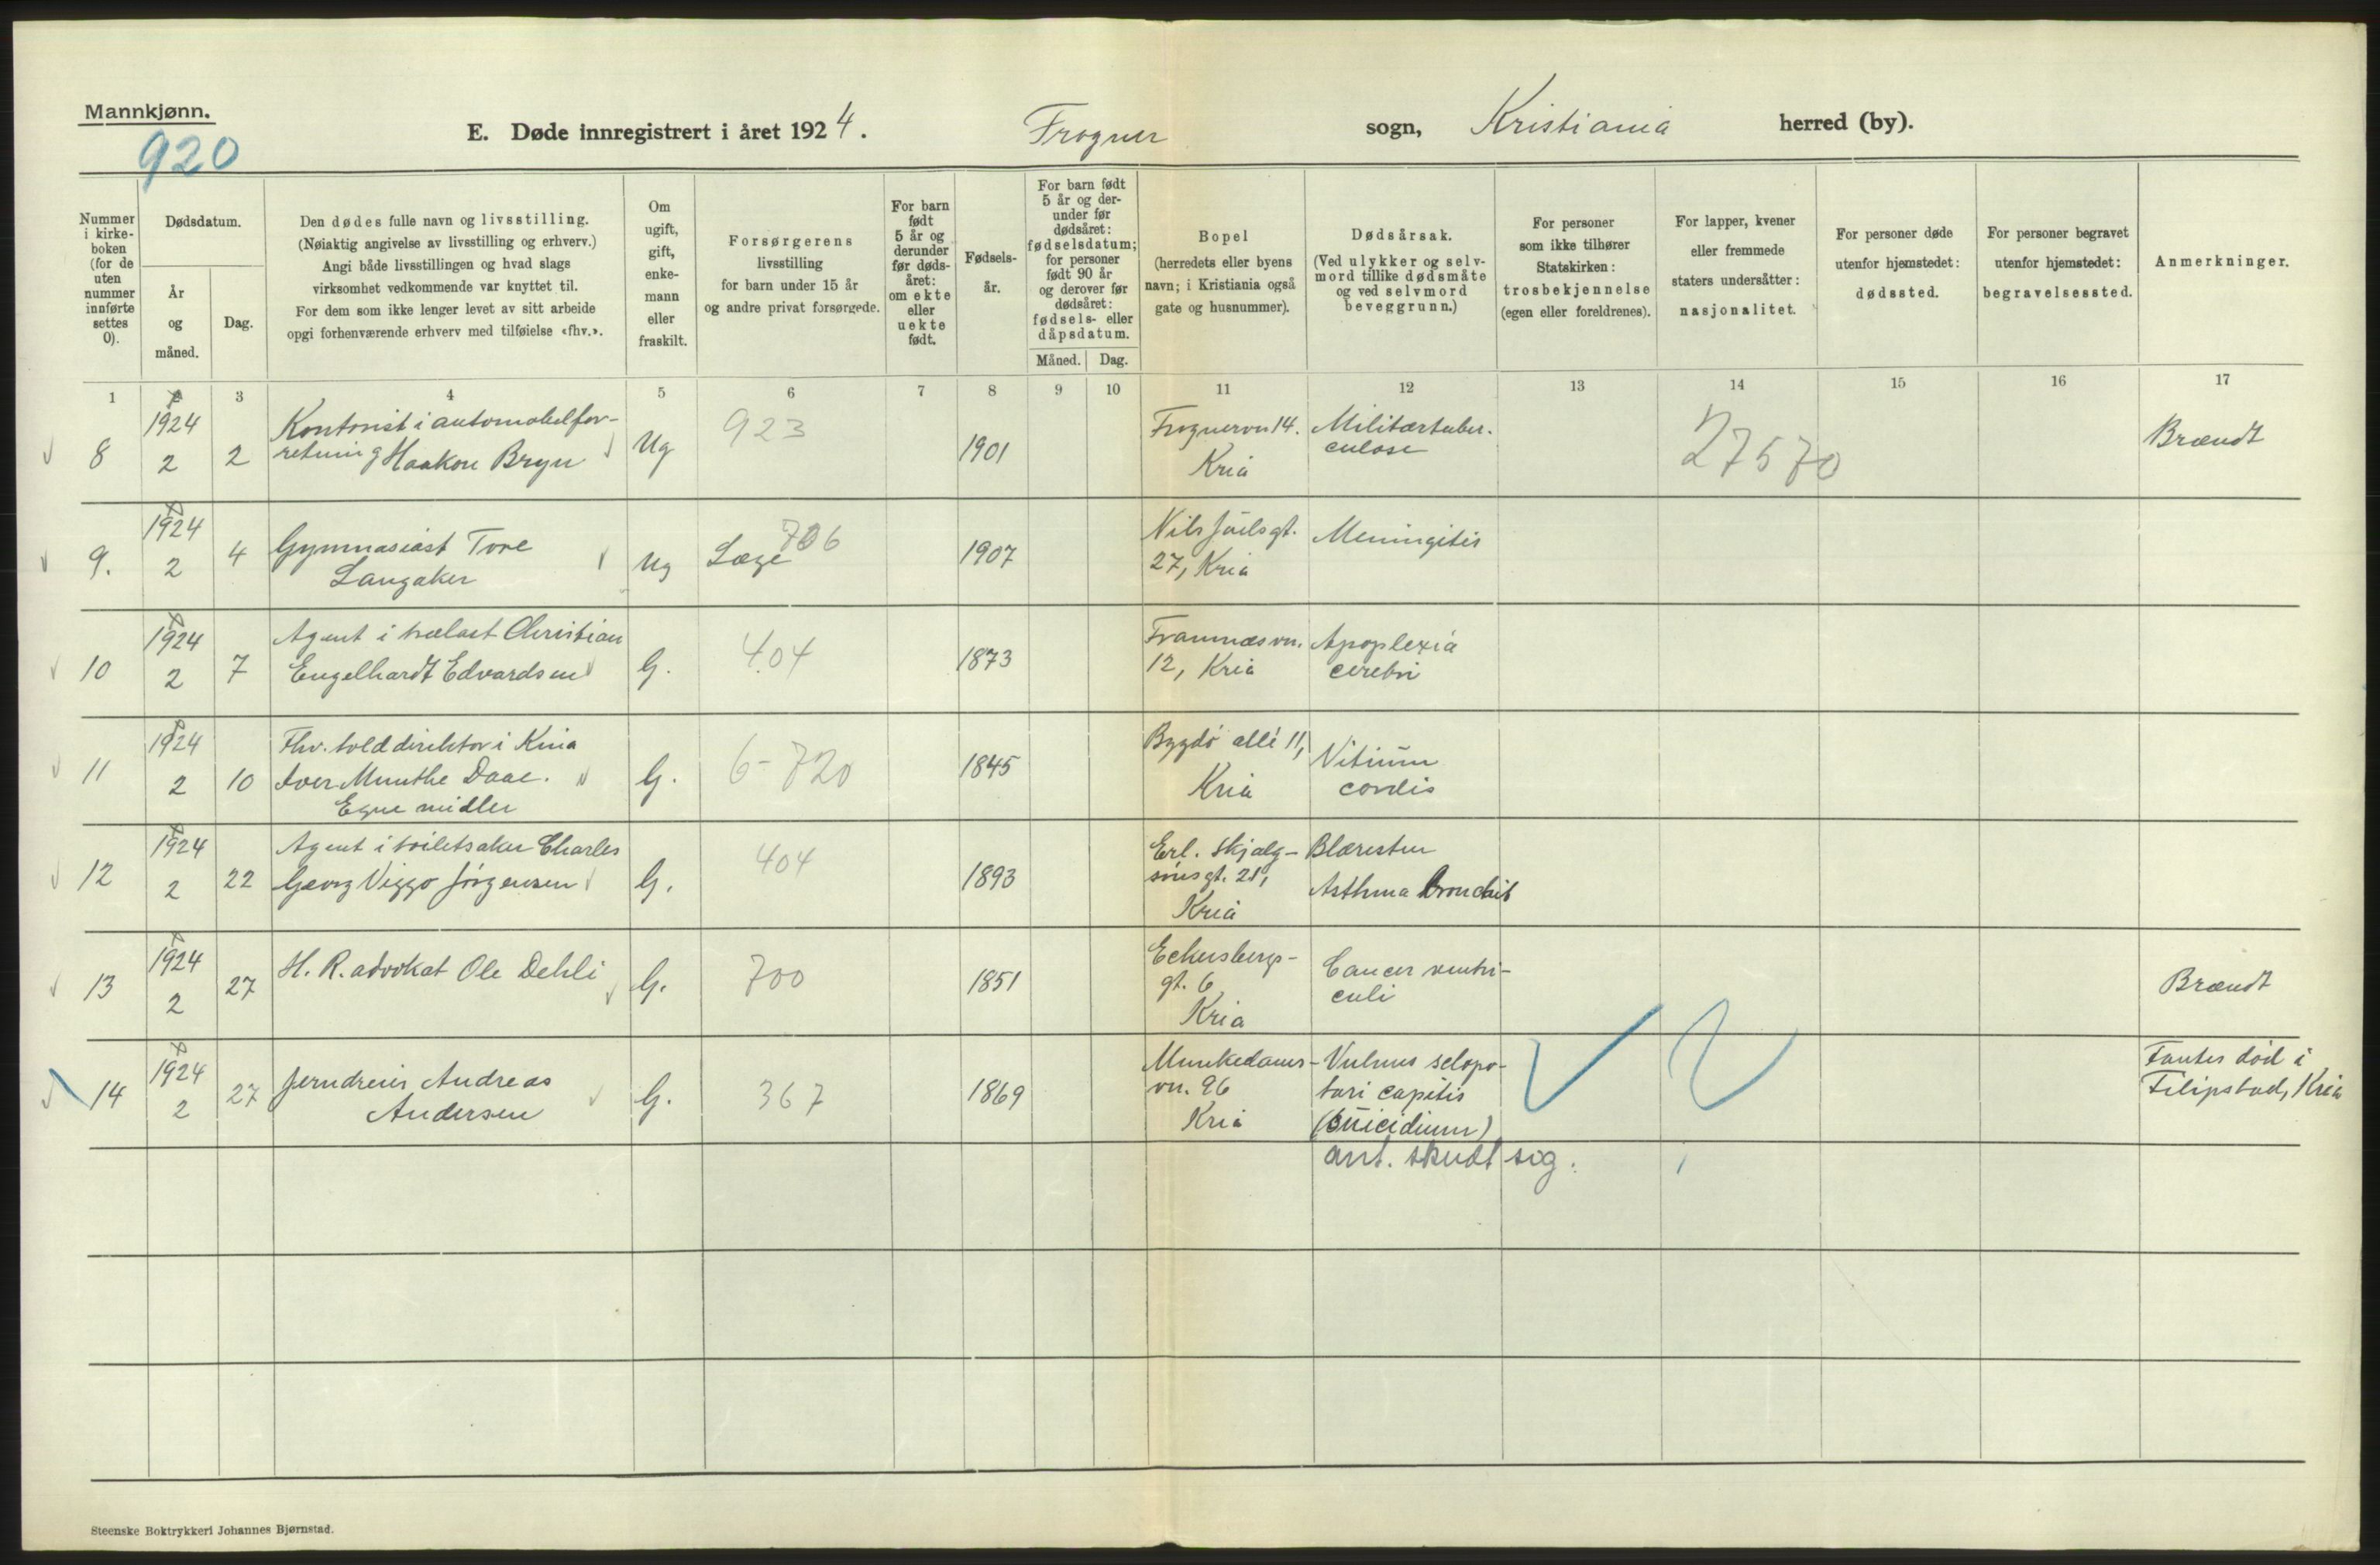 Mannkjønn.
920
E. Døde innregistrert i året 1924. Frogner sogn, Kristiania herred (by).
Nummer i kirke-boken (for de uten nummer innførte settes 0).
Dødsdatum.
År og måned.
Dag.
Den dødes fulle navn og livsstilling.
(Nøiaktig angivelse av livsstilling og erhverv.)
Angi både livsstillingen og hvad slags
virksomhet vedkommende var knyttet til.
For dem som ikke lenger levet av sitt arbeide
opgi forhenværende erhverv med tilføielse «fhv.».
Om ugift, gift, enke-mann eller fraskilt.
Forsørgerens
livsstilling
for barn under 15 år
og andre privat forsørgede.
For barn født 5 år og derunder før døds-året: om ekte eller uekte født.
Fødsels-år.
For barn født 5 år og der-under før dødsåret: fødselsdatum; for personer født 90 år og derover før dødsåret: fødsels- eller dåpsdatum.
Måned. Dag.
Bopel
(herredets eller byens
navn; i Kristiania også
gate og husnummer).
Dødsårsak.
(Ved ulykker og selv-
mord tillike dødsmåte
og ved selvmord
beveggrunn.)
For personer
som ikke tilhører
Statskirken:
trosbekjennelse
(egen eller foreldrenes).
For lapper, kvener
eller fremmede
staters undersåtter:
nasjonalitet.
For personer døde
utenfor hjemstedet:
dødssted.
For personer begravet
utenfor hjemstedet:
begravelsessted.
Anmerkninger.
1 2 3 4 5 6 7 8 9 10 11 12 13 14 15 16 17
8 1924 2 2 Kontorist i automobilfor-
retning Haakon Bryn Ug 923 1901 Frognervn 14. Kria Militærtuber-
culose 27570 Brændt
9. 1924 2 4 Gymnasiast Tore
Langaker Ug Læge 706 1907 Nils Juels gt.
27, Kria Meningitis
10 1924 2 7 Agent i trælast Christian
Engelhardt Edvardsen G. 404 1873 Framnæsvn.
12, Kria Apoplexia
cerebri
11 1924 2 10 Fhv. tolddirektør i Kina
Iver Munthe Daae.
Egne midler G. 6-720 1845 Bygdö allé 11,
Kria Vitium
cordis
12 1924 2 22 Agent i toiletsaker Charles
Georg Viggo Jörgensen G. 404 1893 Erl. Skjalg-
sönsgt. 21,
Kria Blæresten
Asthma bronchit
13 1924 2 27 H. R. advokat Ole Dehli G. 700 1851 Eckersbergs-
gt. 6
Kria Cancer ventri-
culi Brændt
14 1924 2 27 Jerndreier Andreas
Andersen G. 367 1869 Munkedams-
vn. 96
Kria Vulnus sclopo-
tari capitis
(Suicidium)
ant. skudt sig. Fantes död i
Filipstad, Kria
Steenske Boktrykkeri Johannes Bjørnstad.